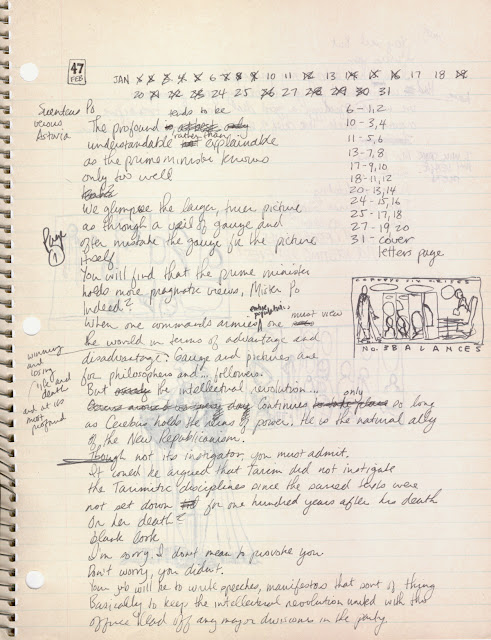 47
FEB
JAN 6 10 11 13 17 18
20 24 25 30 31
Suenteus Po
verious
Astoria
tends to be
The profound is at best only
rather than
understandable not explainable
as the prime minister knows
only too well
We glimpse the larger, truer picture
as through a veil of gauze and
often mistake the gauze for the picture
itself.
Page
1
You will find that the prime minister
holds more pragmatic views, Mister Po
Indeed?
entire populations
When one commands armies, one must view
the world in terms of advantage and
disadvantage. Gauze and pictures are
for philosophers and... followers.
winning
and
losing
life and
death
and at its
most
profound
But the intellectual revolution...
continues only so long
as Cerebus holds the reins of power. He is the natural ally
of the New Republicanism.
Though not its instigator, you must admit.
It could be argued that Tarim did not instigate
the Tarimitic disciplines since the sacred texts were
not set down for one hundred years after his death
Or her death?
blank look
I'm sorry. I don't mean to provoke you
Don't worry, you didn't.
Your job will be to write speeches, manifestos that sort of thing
Basically to keep the intellectual revolution united with this
office. Head off any major divisions in the party.
6-1,2
10-3,4
11-5,6
13-7,8
17-9,10
18-11,12
20-13,14
24-15,16
25-17,18
27-19,20
31-cover
letters page
No. BALANCES